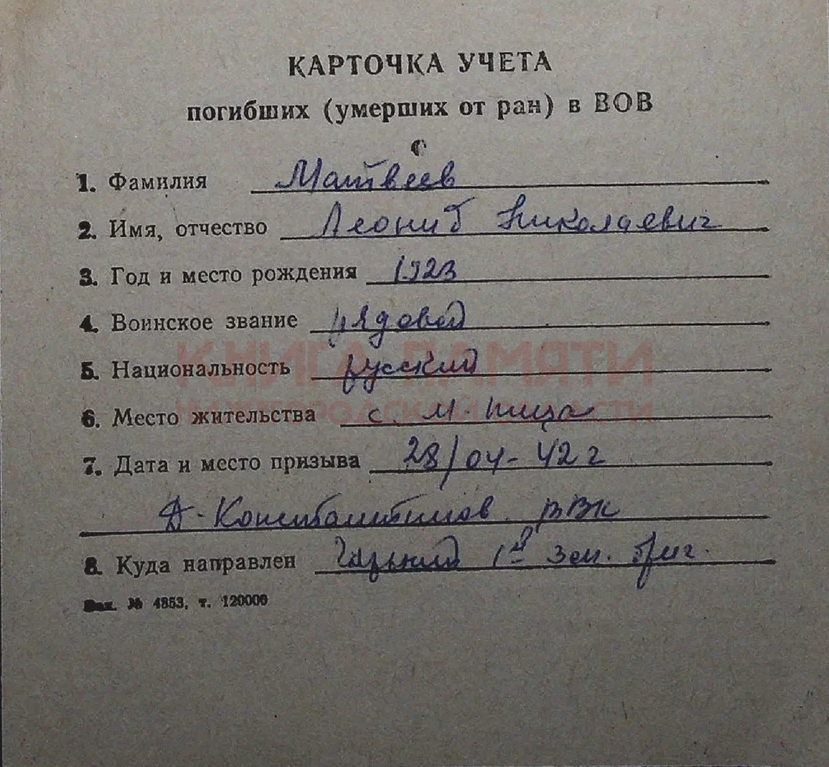 КАРТОЧКА УЧЕТА
погибших (умерших от ран) в ВОВ
1. Фамилия Матвеев
2. Имя, отчество Леонид Николаевич
3. Год и место рождения 1923
4. Воинское звание рядовой
5. Национальность русский
КНИГА ПАМЯТИ
6. Место жительства с. М-Пица
НИЖЕГОРОДСКОЙ ОБЛАСТИ
7. Дата и место призыва 28/04-42 г
Д-Константинов. РВК
8. Куда направлен 1й зен. бриг.
Зак. № 4853, т. 120000